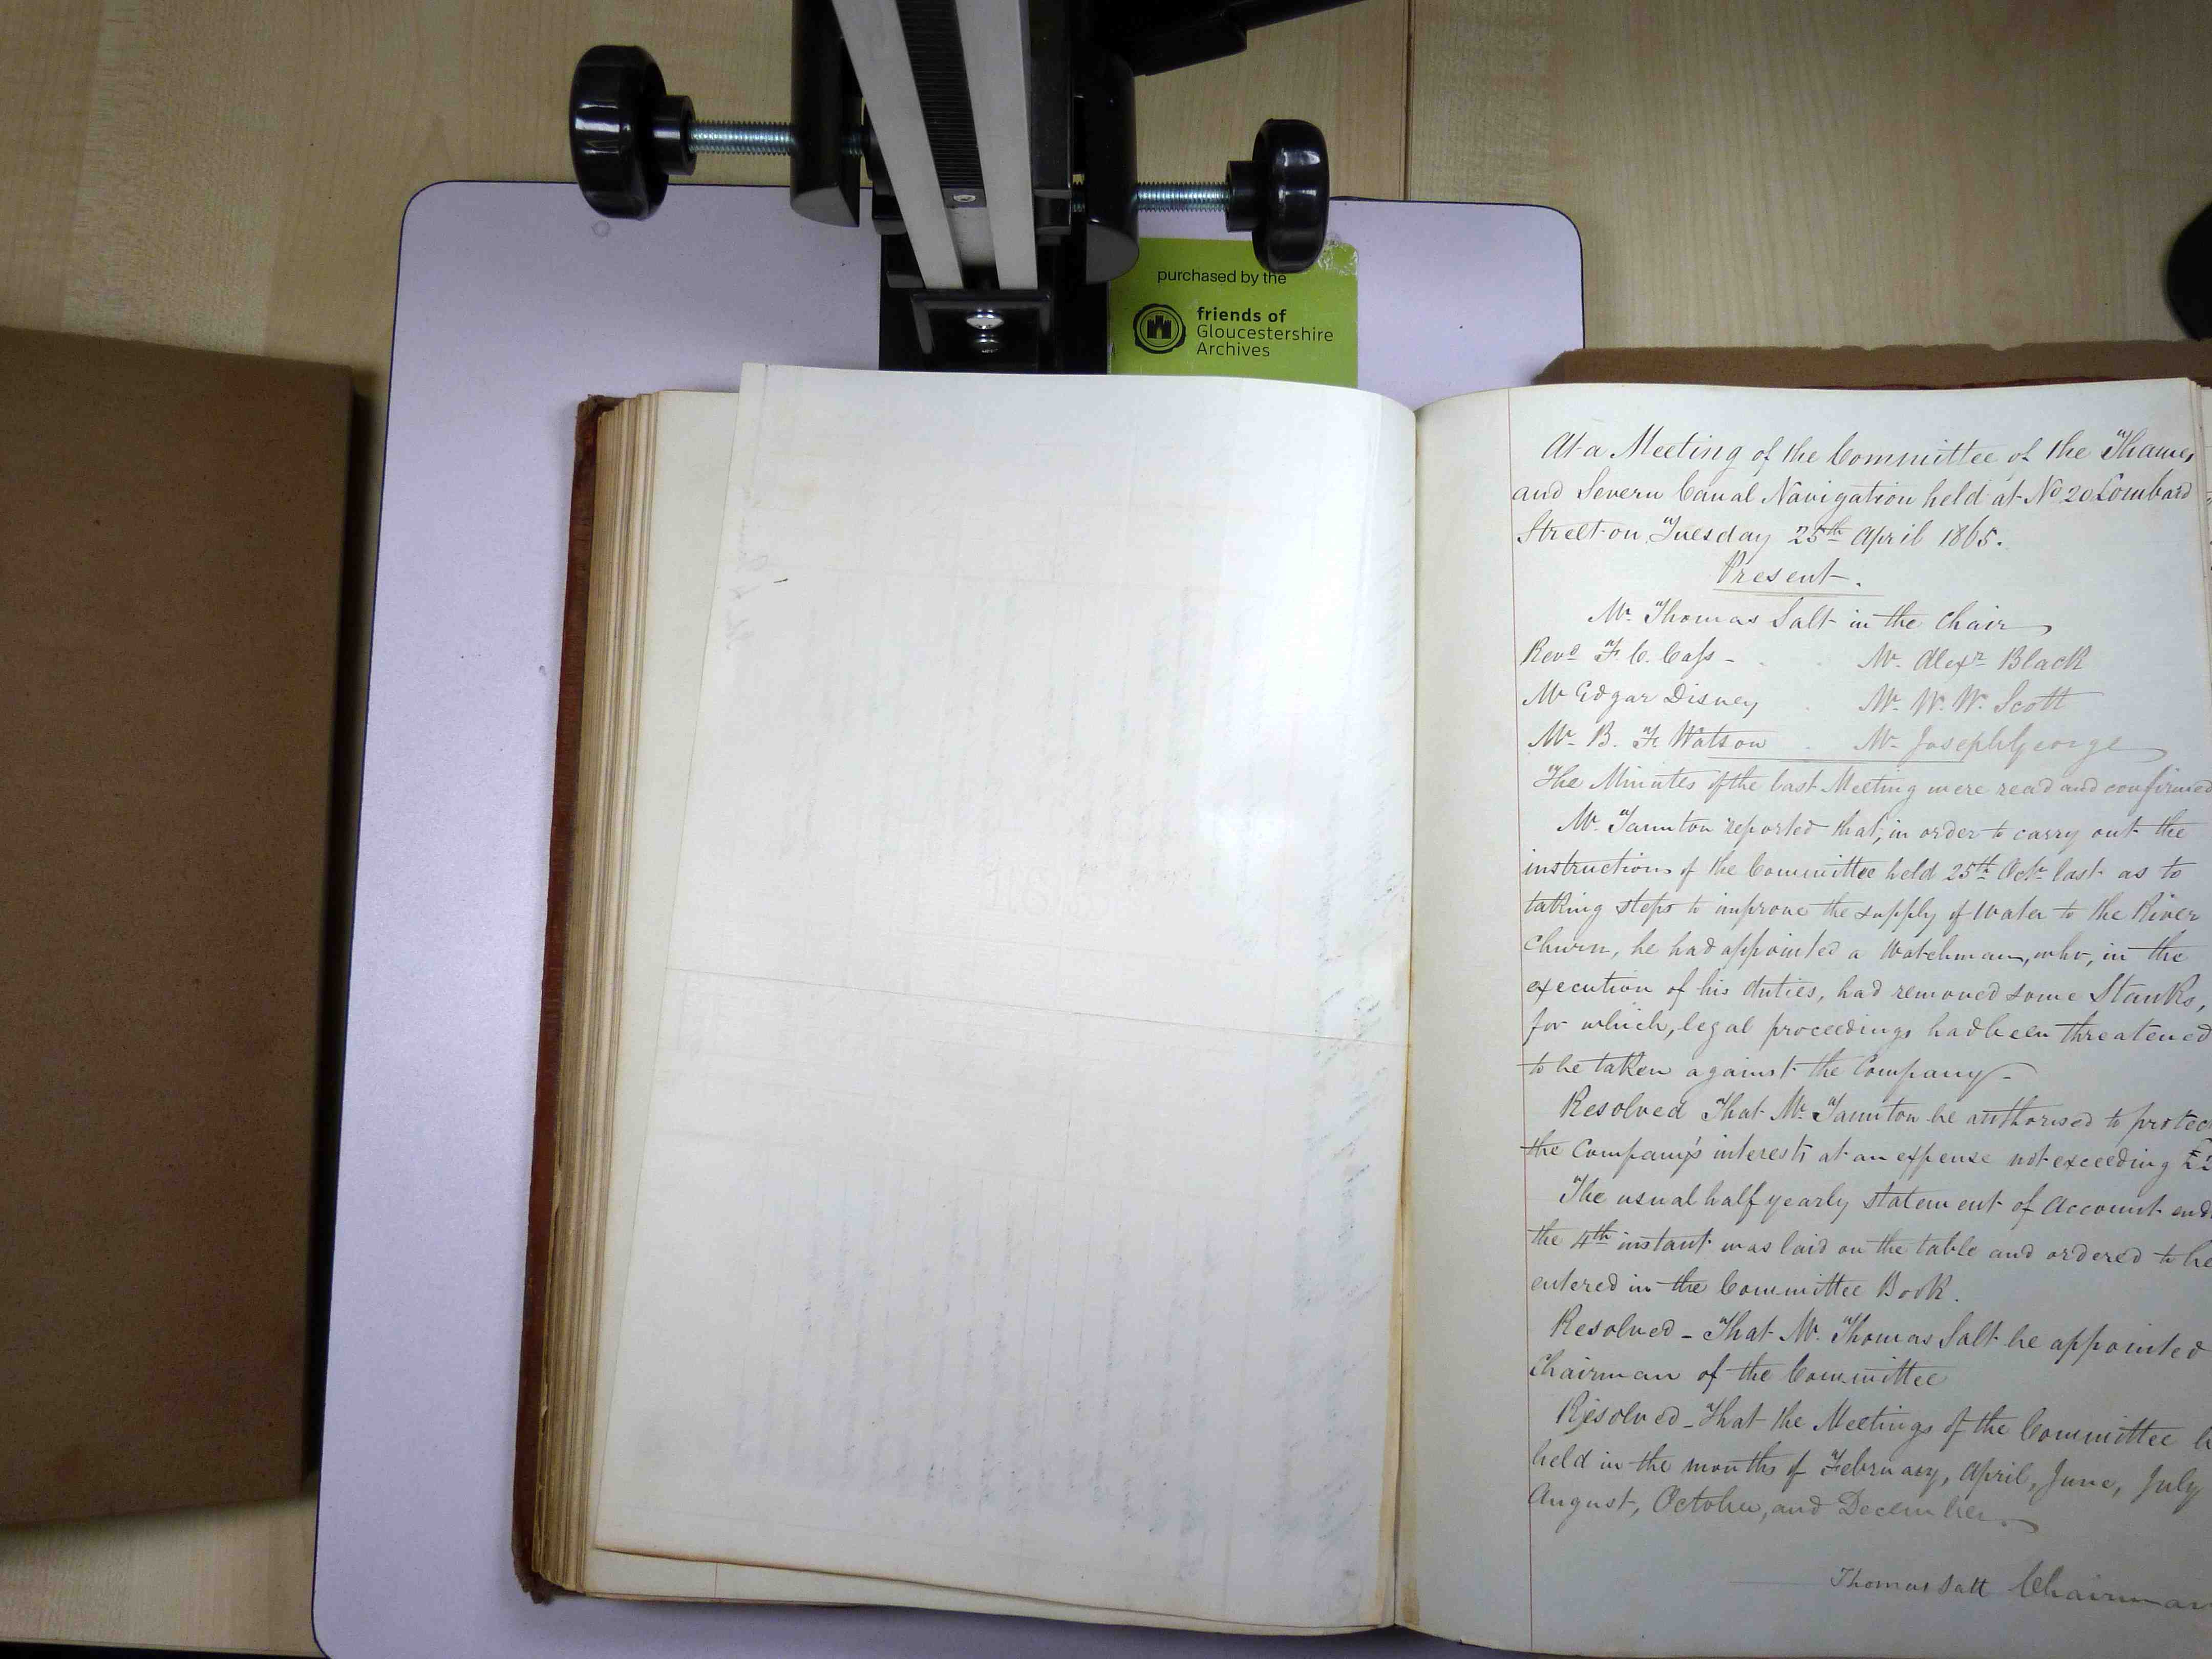 purchased by the
friends of
Gloucestershire
Archives
At a Meeting of the Committee of the Thames
and Severn Canal Navigation held at No 20 Lombard
Street on Tuesday 25th April 1865.
Present.
Mr. Thomas Salt in the Chair
Revd F. C. Cass -
Mr. Alexr Black
Mr Edgar Disney
Mr. W. W. Scott
Mr. B. F. Watson
Mr. Joseph George
The Minutes of the last Meeting were read and confirmed
Mr. Taunton reported that, in order to carry out the
instructions of the Committee held 25th Octr last as to
taking steps to improve the supply of Water to the River
Churn, he had appointed a Watchman, who, in the
execution of his duties, had removed some Stanks,
for which, legal proceedings had been threatened
to be taken against the Company -
Resolved That Mr. Taunton be authorised to protec
the Company's interests at an expense not exceeding
The usual half yearly statement of Account end
the 4th instant was laid on the table and ordered to be
entered in the Committee Book.
Resolved - That Mr. Thomas Salt be appointed
Chairman of the Committee
Resolved - That the Meetings of the Committee b
held in the months of February, April, June, July
August, October, and December.
Thomas Salt Chairman